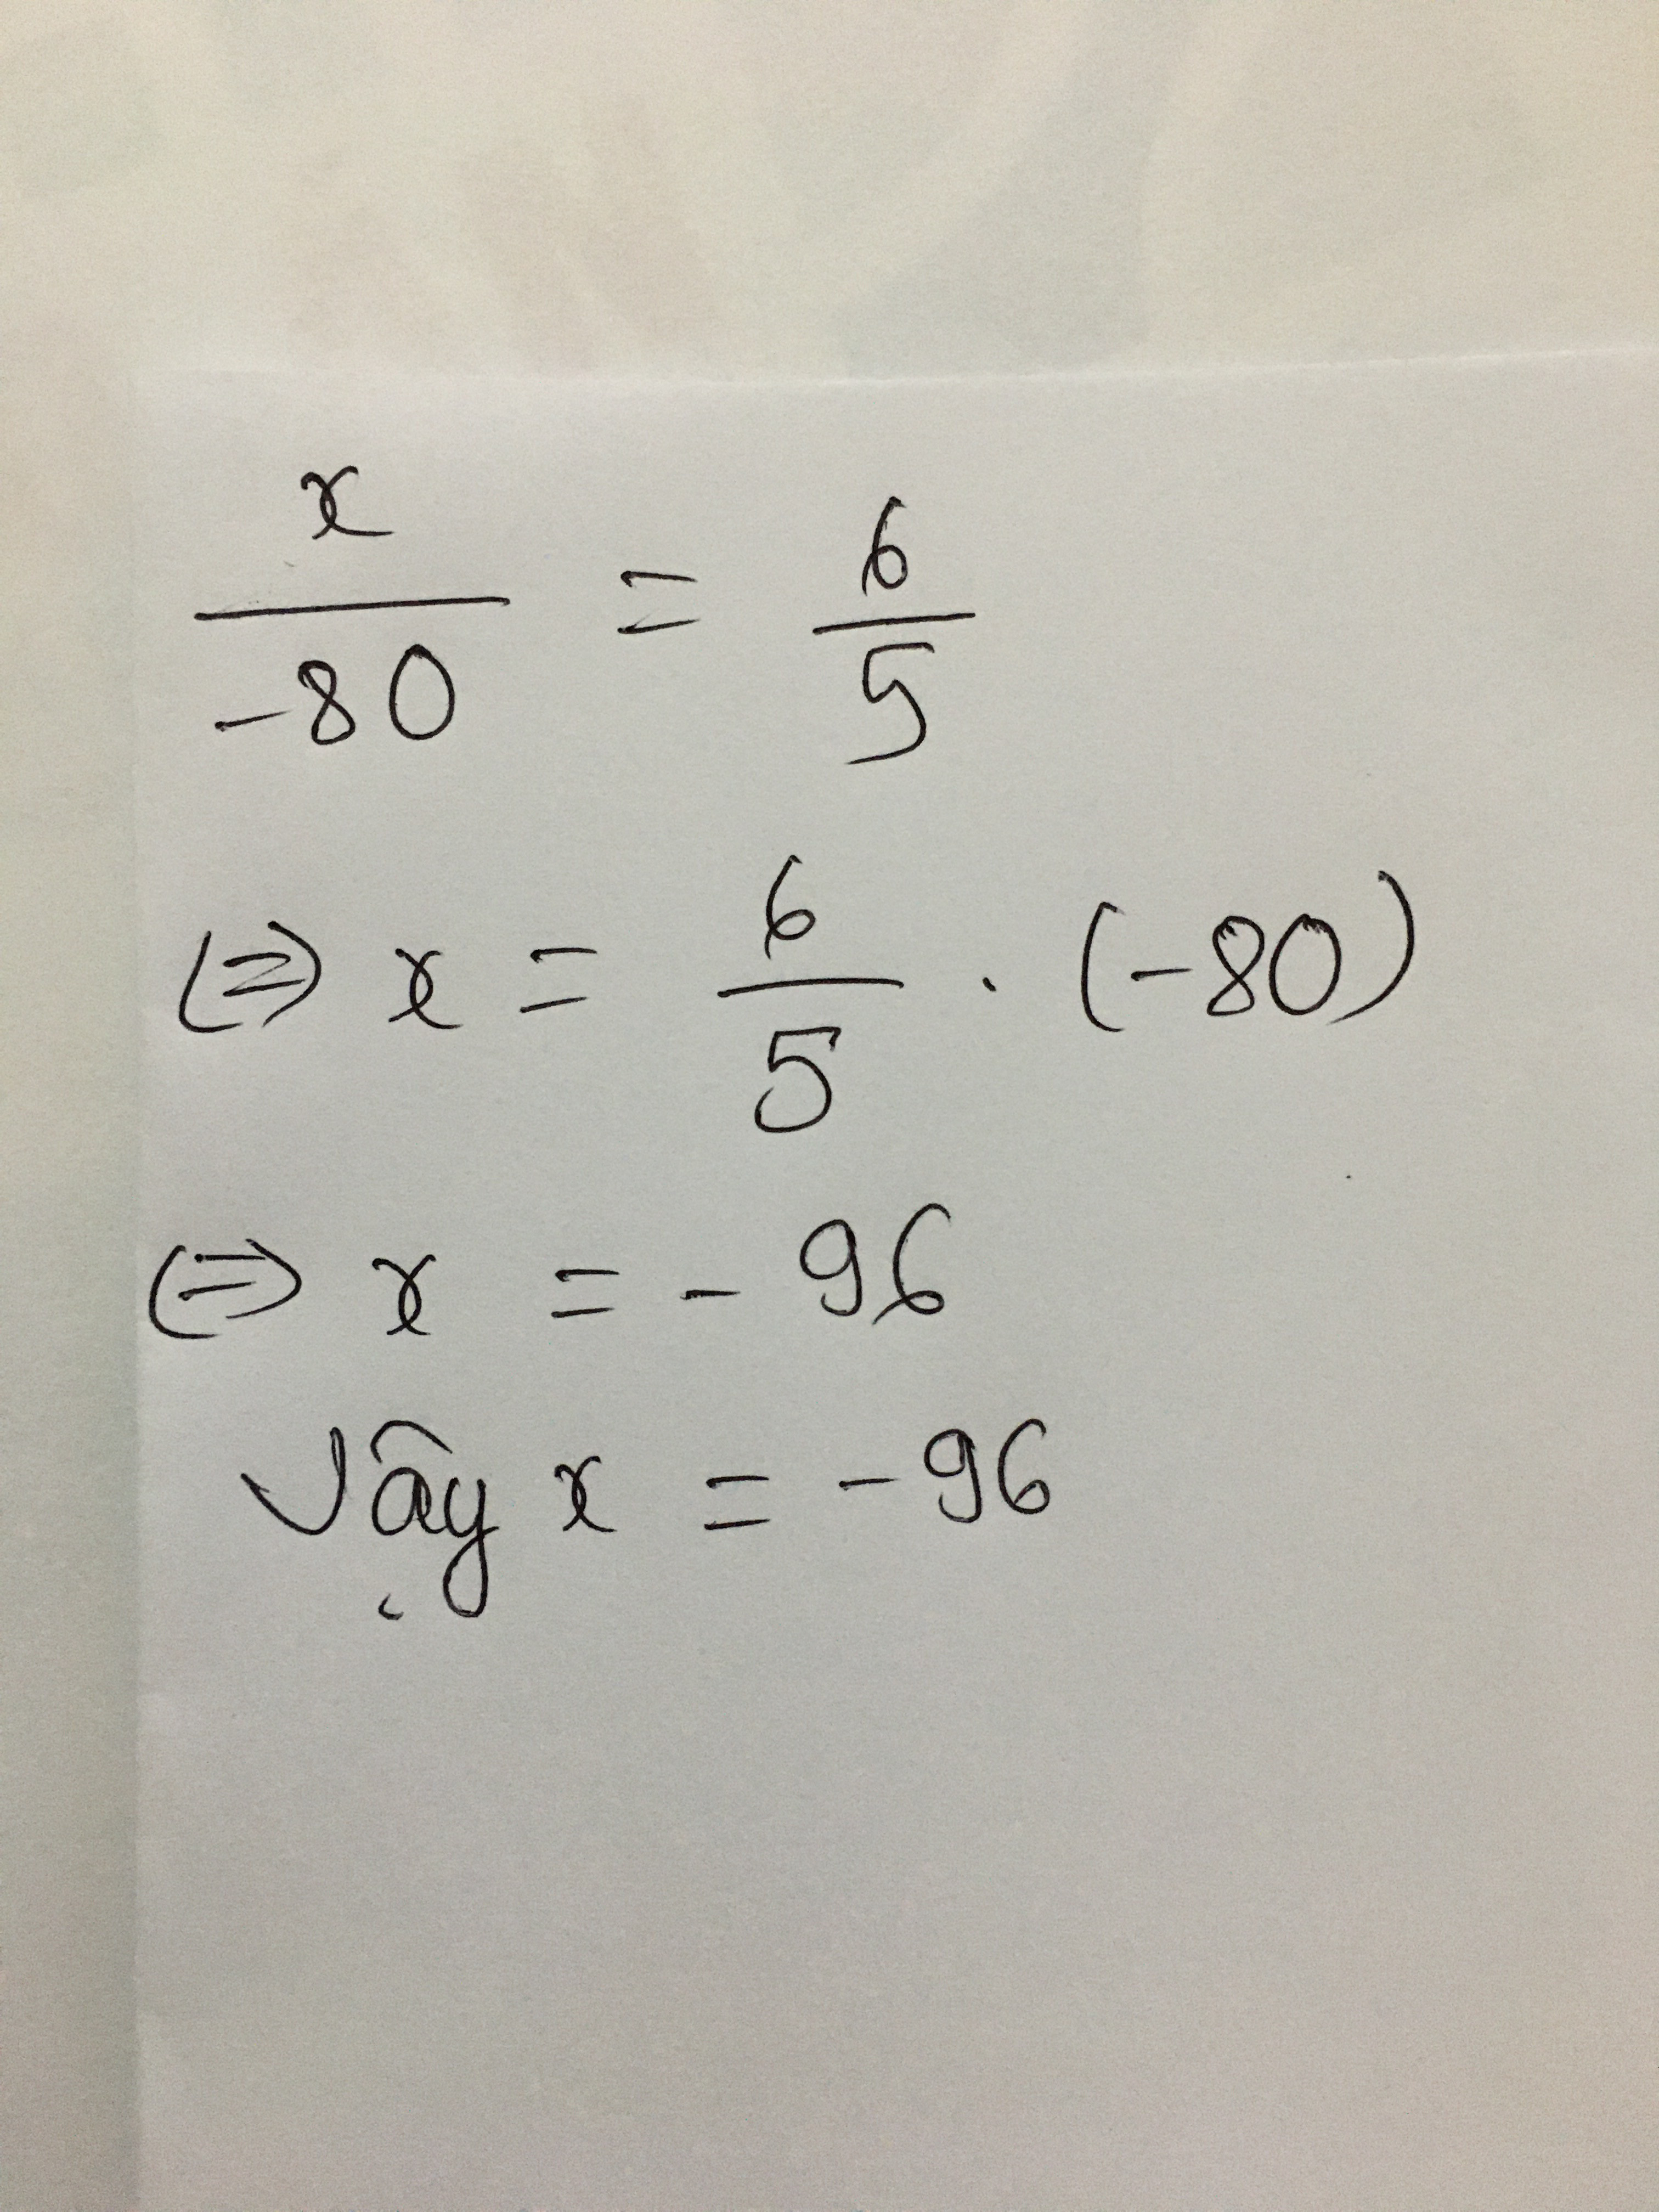 x/-80 = 6/5
<=> x = 6/5 . (-80)
<=> x = - 96
Vậy x = - 96